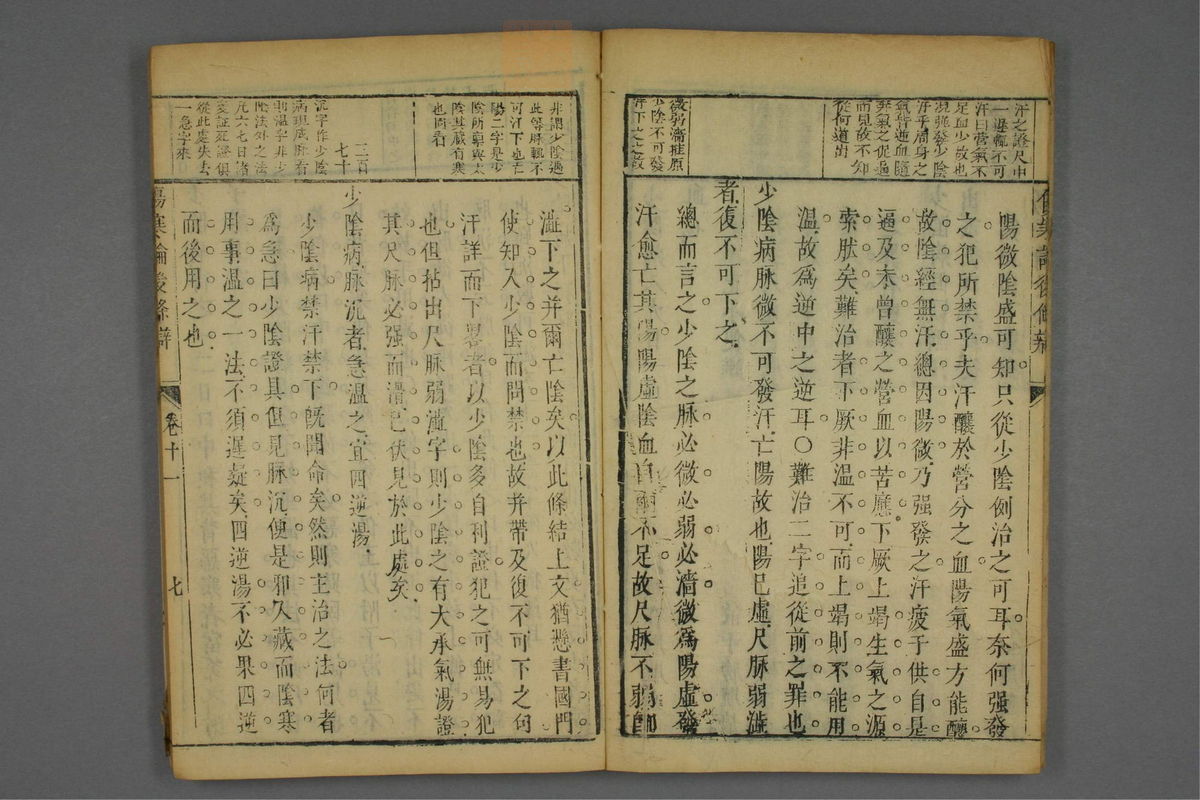 汗之證尺中
一遲輒不可
汗曰營氣不
足血少故也
況強發少陰
汗乎周身之
氣皆逆血隨
奔氣之促逼
而見故不知
從何道出
陽微陰盛可知只從少陰例治之可耳奈何强發
之犯所禁乎夫汗釀於營分之血陽氣盛方能釀
故陰經無汗總因陽微乃强發之汗疲于供自是
逼及未曾釀之營血以苦應下厥上竭生氣之源
索肰矣難治者下厥非溫不可而上竭則不能用
溫故爲逆中之逆耳○難治二字追從前之罪也
少陰病脉微不可發汗亡陽故也陽已虛尺脉弱濇
者復不可下之
微弱濇推原
少陰不可發
汗下之之故
總而言之少陰之脉必微必弱必濇微爲陽虛發
汗愈亡其陽陽虛陰血自爾不足故尺脉不弱卽
非謂少陰遇
此等脉輒不
可汗下也亡
陽二字是少
陰所禀與太
陰其藏有寒
也同看
濇下之并爾亡陰矣以此條結上文猶懸書國門
使知入少陰而問禁也故并帶及復不可下之句
汗詳而下畧者以少陰多自利證犯之可無易犯
也但拈出尺脉弱濇字則少陰之有大承氣湯證
其尺脉必强而滑已伏見於此處矣
三百
七十
少陰病脉沉者急溫之宜四逆湯
沉字作少陰
病現底脉看
則溫字非少
陰法外之法
凢六七日諸
變証死證俱
從此處失去
一急字來
少陰病禁汗禁下旣聞命矣然則主治之法何者
爲急曰少陰證具但見脉沉便是邪入藏而陰寒
用事溫之一法不須遲疑矣四逆湯不必果四逆
而後用之也
傷寒論後條辯
卷十一
七